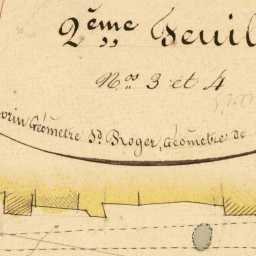 2ème Feuil
Nos 3 et 4
orin Géomètre Sd. Roger, Géomètre de